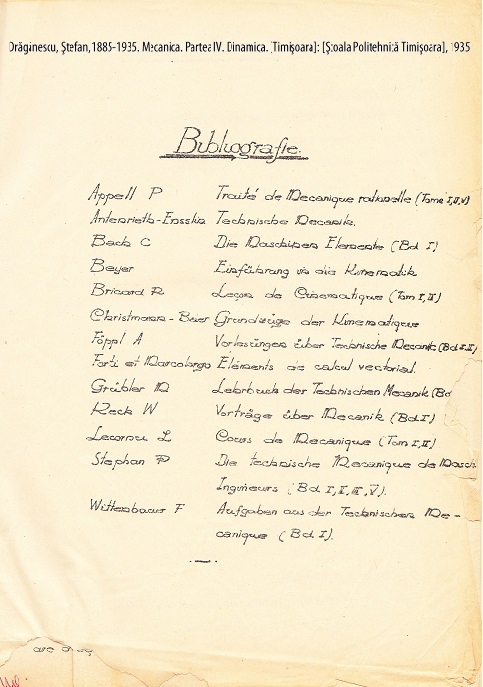 Drăginescu, Ștefan, 1885-1935. Mecanica. Partea IV. Dinamica. [Timișoara]: [Școala Politehnică Timișoara], 1935
Bibliografie.
Appell P Traité de Mecanique rationelle (Tome I,II,V)
Autenrieth-Ensslin Technische Mecanik.
Bach C Die Maschinen Elemente (Bd. I)
Beyer Einführung in die Kinematik
Bricard R Leçon de Cinematique (Tom I,II)
Christmann-Baer Grundzüge der Kinematique
Föppl A Vorlesungen über Technische Mecanik (Bd. I-II)
Forti et Marcolongo Elements de calcul vectorial.
Grübler M Lehrbuch der Technischen Mecanik (Bd
Keck W Vorträge über Mecanik (Bd. I)
Lecornu L Cours de Mecanique (Tom I,II)
Stephan P Die technische Mecanique de Masch.
Ingineurs (Bd. I, II, III, V).
Wittenbauer F Aufgaben aus der Technischen Me-
canique (Bd. I).